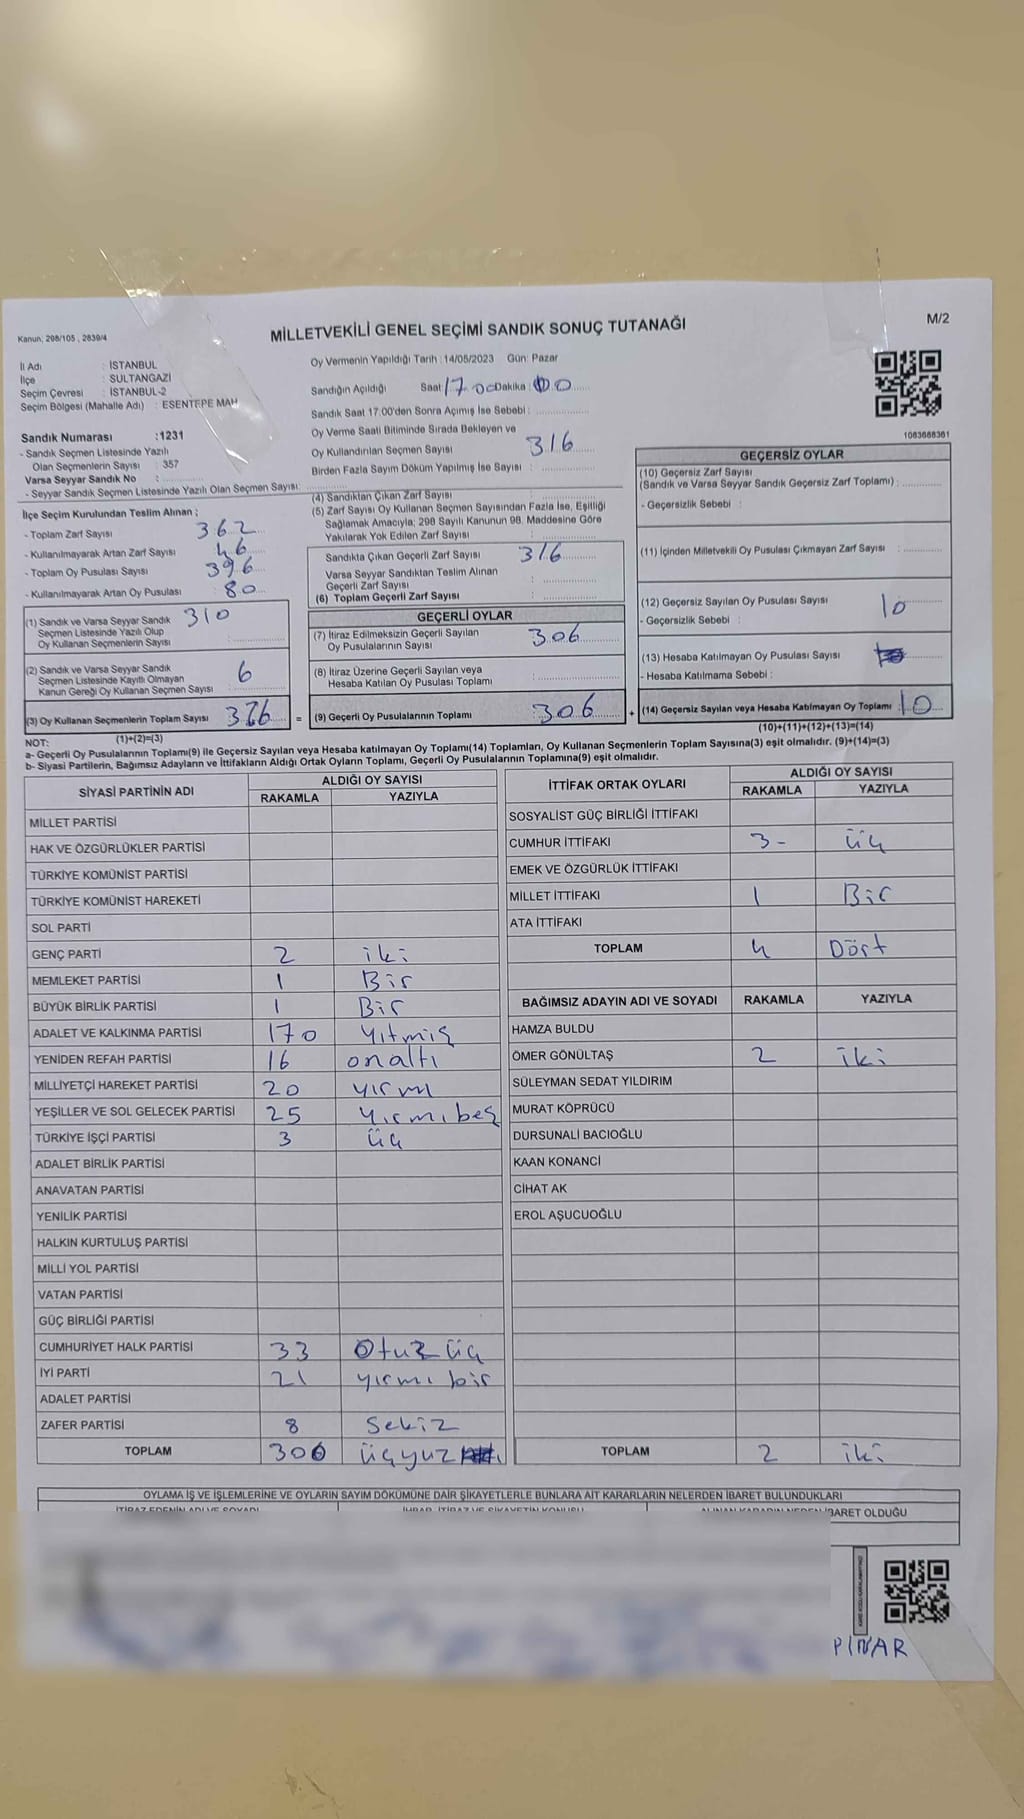 Kanun; 298/105 , 2839/4
MİLLETVEKİLİ GENEL SEÇİMİ SANDIK SONUÇ TUTANAĞI
M/2
İl Adı : İSTANBUL
İlçe : SULTANGAZİ
Seçim Çevresi : İSTANBUL-2
Seçim Bölgesi (Mahalle Adı) : ESENTEPE MAH
Sandık Numarası :1231
- Sandık Seçmen Listesinde Yazılı
Olan Seçmenlerin Sayısı : 357
Varsa Seyyar Sandık No :
- Seyyar Sandık Seçmen Listesinde Yazılı Olan Seçmen Sayısı:
Oy Vermenin Yapıldığı Tarih :14/05/2023 Gün: Pazar
Sandığın Açıldığı Saat 17.00 Dakika : 00
Sandık Saat 17:00'den Sonra Açımış İse Sebebi :
Oy Verme Saati Bitiminde Sırada Bekleyen ve
Oy Kullandırılan Seçmen Sayısı 316
Birden Fazla Sayım Döküm Yapılmış İse Sayısı :
1083668361
İlçe Seçim Kurulundan Teslim Alınan :
- Toplam Zarf Sayısı 362
- Kullanılmayarak Artan Zarf Sayısı 46
- Toplam Oy Pusulası Sayısı 396
- Kullanılmayarak Artan Oy Pusulası 80
(1) Sandık ve Varsa Seyyar Sandık 310
Seçmen Listesinde Yazılı Olup
Oy Kullanan Seçmenlerin Sayısı :
(2) Sandık ve Varsa Seyyar Sandık
Seçmen Listesinde Kayıtlı Olmayan 6
Kanun Gereği Oy Kullanan Seçmen Sayısı :
(3) Oy Kullanan Seçmenlerin Toplam Sayısı 316 =
(1)+(2)=(3)
(4) Sandıktan Çıkan Zarf Sayısı :
(5) Zarf Sayısı Oy Kullanan Seçmen Sayısından Fazla İse, Eşitliği
Sağlamak Amacıyla; 298 Sayılı Kanunun 98. Maddesine Göre
Yakılarak Yok Edilen Zarf Sayısı :
Sandıkta Çıkan Geçerli Zarf Sayısı 316
Varsa Seyyar Sandıktan Teslim Alınan
Geçerli Zarf Sayısı :
(6) Toplam Geçerli Zarf Sayısı :
GEÇERLİ OYLAR
(7) İtiraz Edilmeksizin Geçerli Sayılan
Oy Pusulalarının Sayısı 306
(8) İtiraz Üzerine Geçerli Sayılan veya
Hesaba Katılan Oy Pusulası Toplamı :
(9) Geçerli Oy Pusulalarının Toplamı 306 +
GEÇERSİZ OYLAR
(10) Geçersiz Zarf Sayısı
(Sandık ve Varsa Seyyar Sandık Geçersiz Zarf Toplamı) :
- Geçersizlik Sebebi :
(11) İçinden Milletvekili Oy Pusulası Çıkmayan Zarf Sayısı :
(12) Geçersiz Sayılan Oy Pusulası Sayısı 10
- Geçersizlik Sebebi :
(13) Hesaba Katılmayan Oy Pusulası Sayısı
- Hesaba Katılmama Sebebi :
(14) Geçersiz Sayılan veya Hesaba Katılmayan Oy Toplamı : 10
(10)+(11)+(12)+(13)=(14)
NOT:
a- Geçerli Oy Pusulalarının Toplamı(9) ile Geçersiz Sayılan veya Hesaba katılmayan Oy Toplamı(14) Toplamları, Oy Kullanan Seçmenlerin Toplam Sayısına(3) eşit olmalıdır. (9)+(14)=(3)
b- Siyasi Partilerin, Bağımsız Adayların ve İttifakların Aldığı Ortak Oyların Toplamı, Geçerli Oy Pusulalarının Toplamına(9) eşit olmalıdır.
SİYASİ PARTİNİN ADI ALDIĞI OY SAYISI
RAKAMLA YAZIYLA
MİLLET PARTİSİ
HAK VE ÖZGÜRLÜKLER PARTİSİ
TÜRKİYE KOMÜNİST PARTİSİ
TÜRKİYE KOMÜNİST HAREKETİ
SOL PARTİ
GENÇ PARTİ 2 iki
MEMLEKET PARTİSİ 1 Bir
BÜYÜK BİRLİK PARTİSİ 1 Bir
ADALET VE KALKINMA PARTİSİ 170 yıtmiş
YENİDEN REFAH PARTİSİ 16 onaltı
MİLLİYETÇİ HAREKET PARTİSİ 20 yırmı
YEŞİLLER VE SOL GELECEK PARTİSİ 25 yırmıbeş
TÜRKİYE İŞÇİ PARTİSİ 3 üç
ADALET BİRLİK PARTİSİ
ANAVATAN PARTİSİ
YENİLİK PARTİSİ
HALKIN KURTULUŞ PARTİSİ
MİLLİ YOL PARTİSİ
VATAN PARTİSİ
GÜÇ BİRLİĞİ PARTİSİ
CUMHURİYET HALK PARTİSİ 33 Otuz üç
İYİ PARTİ 21 yırmı bir
ADALET PARTİSİ
ZAFER PARTİSİ 8 Sekiz
TOPLAM 300 üçyuz
İTTİFAK ORTAK OYLARI ALDIĞI OY SAYISI
RAKAMLA YAZIYLA
SOSYALİST GÜÇ BİRLİĞİ İTTİFAKI
CUMHUR İTTİFAKI 3- üç
EMEK VE ÖZGÜRLÜK İTTİFAKI
MİLLET İTTİFAKI 1 Bir
ATA İTTİFAKI
TOPLAM 4 Dört
BAĞIMSIZ ADAYIN ADI VE SOYADI RAKAMLA YAZIYLA
HAMZA BULDU
ÖMER GÖNÜLTAŞ 2 iki
SÜLEYMAN SEDAT YILDIRIM
MURAT KÖPRÜCÜ
DURSUNALİ BACIOĞLU
KAAN KONANCİ
CİHAT AK
EROL AŞUCUOĞLU
TOPLAM 2 iki
OYLAMA İŞ VE İŞLEMLERİNE VE OYLARIN SAYIM DÖKÜMÜNE DAİR ŞİKAYETLERLE BUNLARA AİT KARARLARIN NELERDEN İBARET BULUNDUKLARI
İTİRAZ EDENİN ADI VE SOYADI İHBAR, İTİRAZ VE ŞİKAYETİN KONUSU ALINAN KARARIN NEDEN İBARET OLDUĞU
PINAR